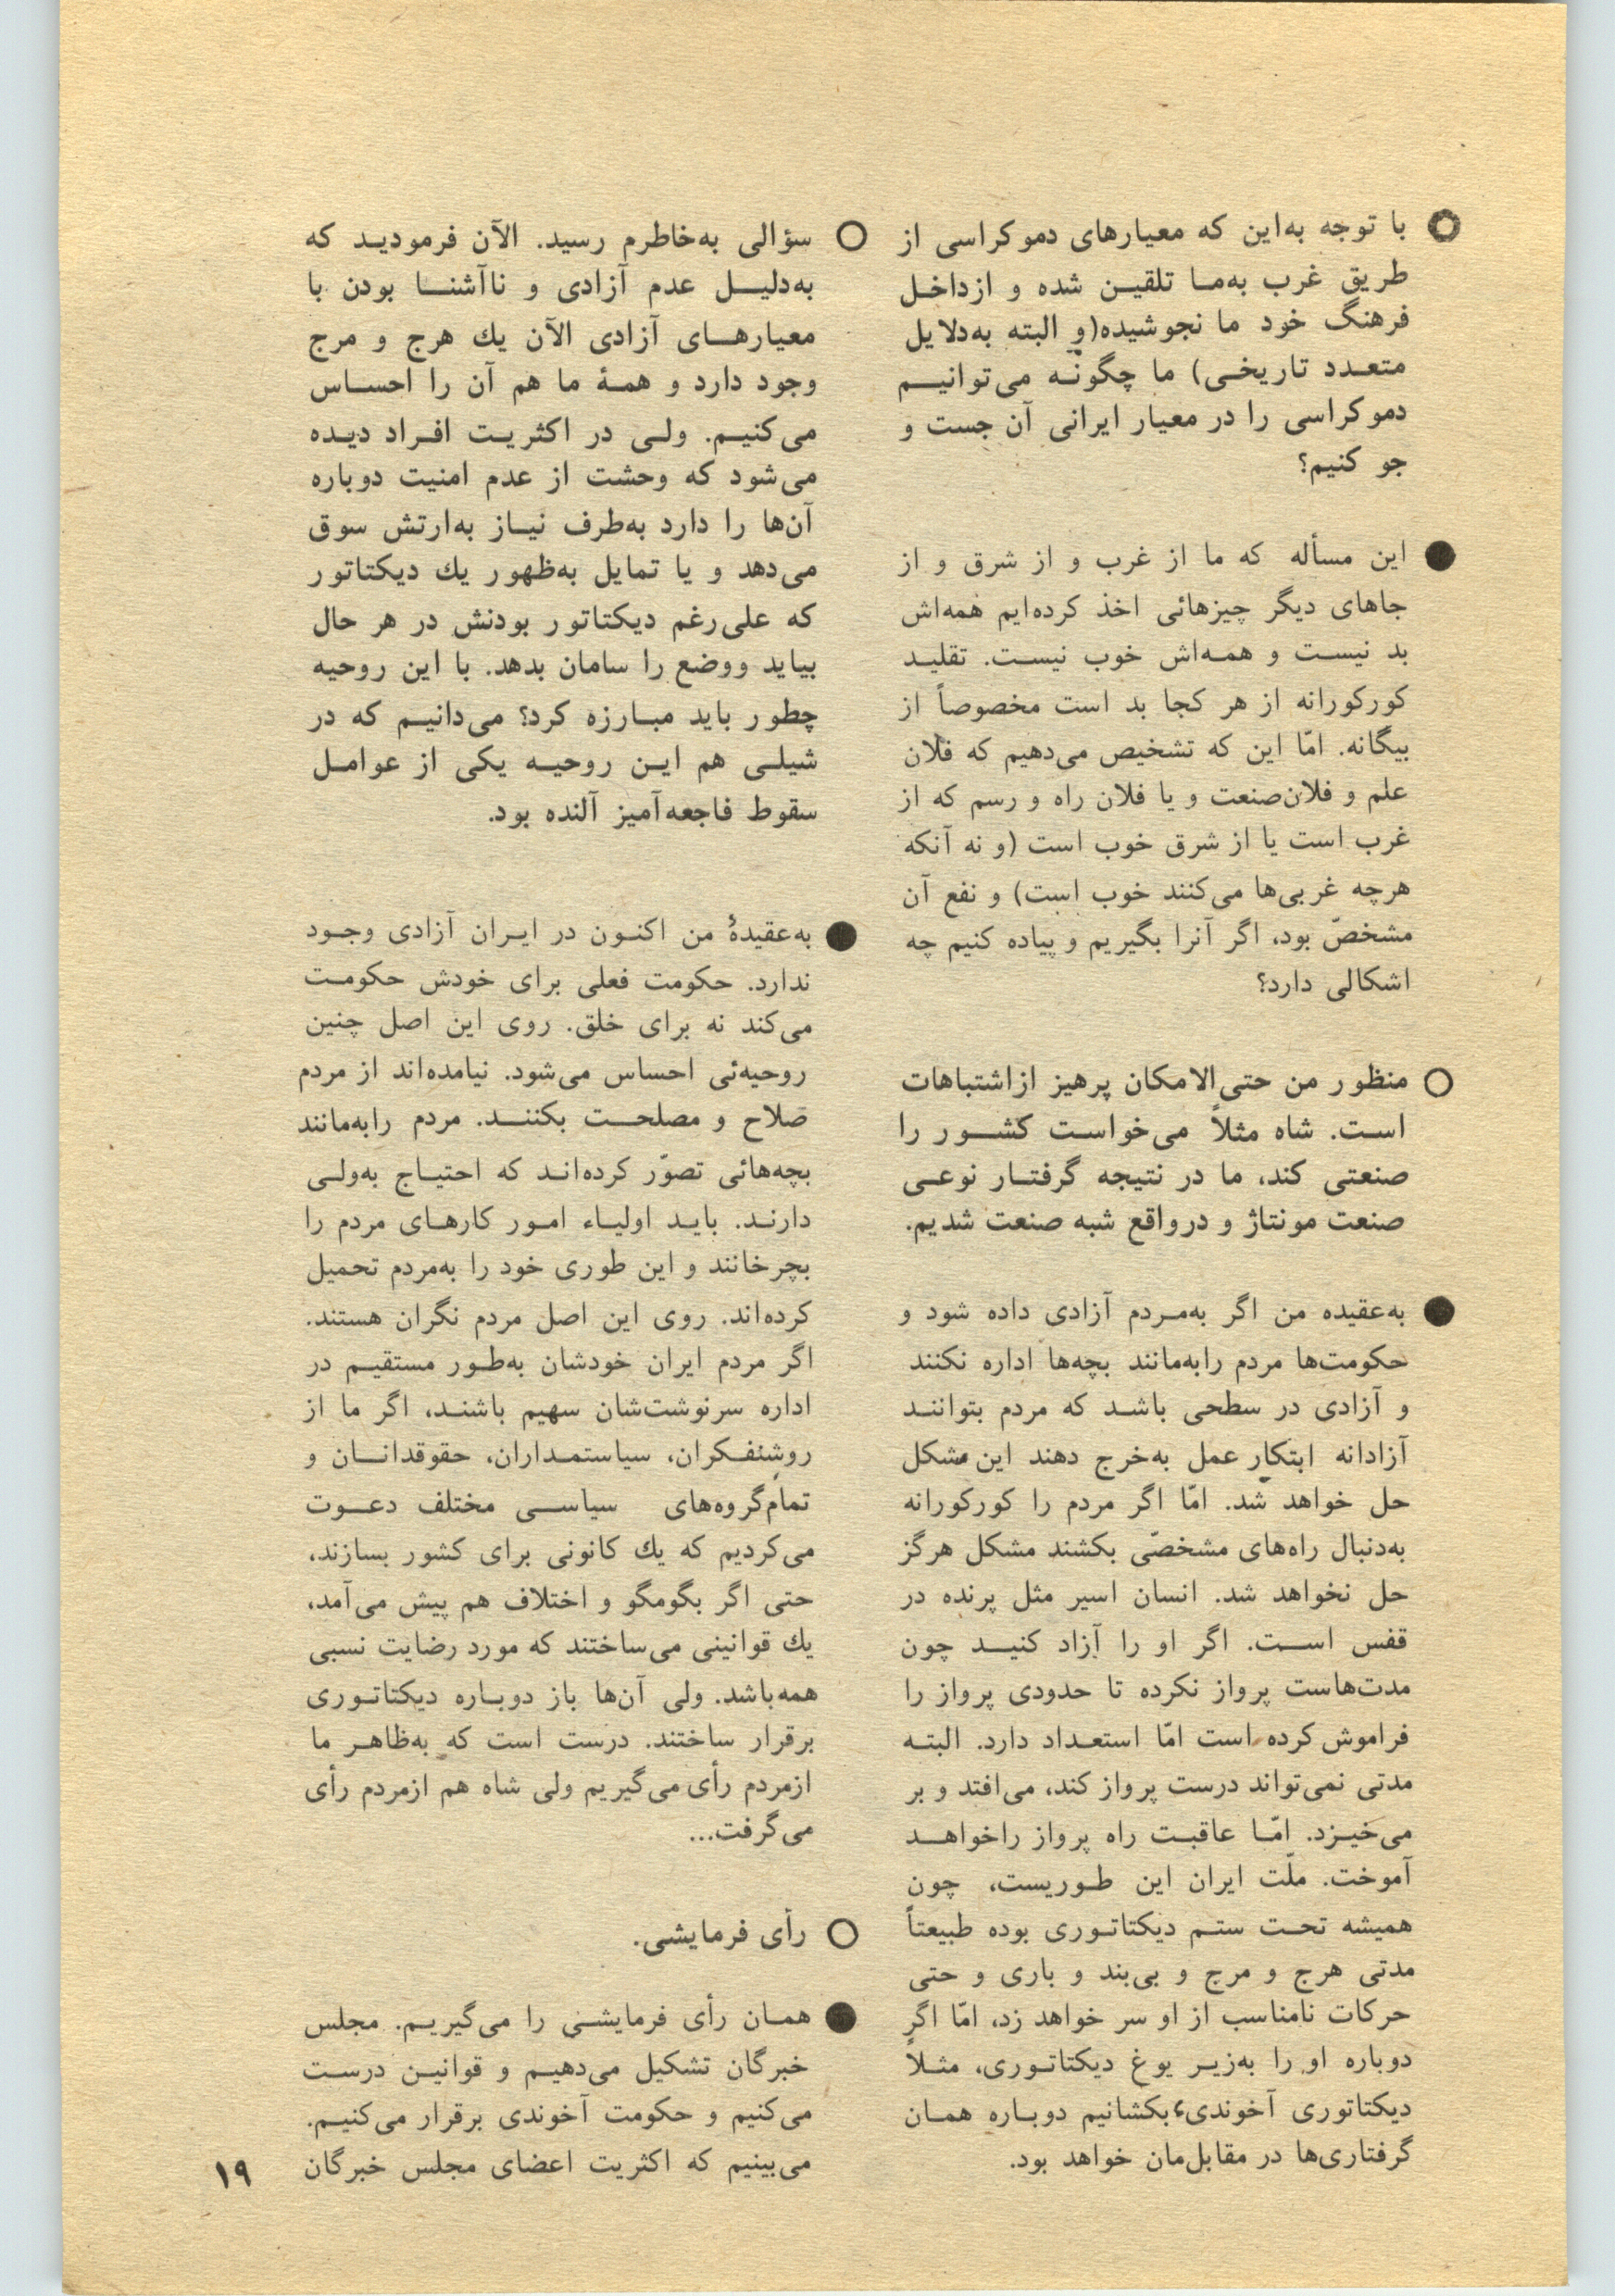 با توجه به‌این که معیارهای دموکراسی از
طریق غرب به‌ما تلقین شده و ازداخل
فرهنگ خود ما نجوشیده(و البته به‌دلایل
متعدد تاریخی) ما چگونه می‌توانیم
دموکراسی را در معیار ایرانی آن جست و
جو کنیم؟
این مسأله که ما از غرب و از شرق و از
جاهای دیگر چیزهائی اخذ کرده‌ایم همه‌اش
بد نیست و همه‌اش خوب نیست. تقلید
کورکورانه از هر کجا بد است مخصوصاً از
بیگانه. امّا این که تشخیص می‌دهیم که فلان
علم و فلان‌صنعت و یا فلان راه و رسم که از
غرب است یا از شرق خوب است (و نه آنکه
هرچه غربی‌ها می‌کنند خوب است) و نفع آن
مشخصّ بود، اگر آنرا بگیریم و پیاده کنیم چه
اشکالی دارد؟
منظور من حتی‌الامکان پرهیز ازاشتباهات
است. شاه مثلاً می‌خواست کشور را
صنعتی کند، ما در نتیجه گرفتار نوعی
صنعت مونتاژ و درواقع شبه صنعت شدیم.
به‌عقیده من اگر به‌مردم آزادی داده شود و
حکومت‌ها مردم رابه‌مانند بچه‌ها اداره نکنند
و آزادی در سطحی باشد که مردم بتوانند
آزادانه ابتکار عمل به‌خرج دهند این مشکل
حل خواهد شد. امّا اگر مردم را کورکورانه
به‌دنبال راه‌های مشخصّی بکشند مشکل هرگز
حل نخواهد شد. انسان اسیر مثل پرنده در
قفس است. اگر او را آزاد کنید چون
مدت‌هاست پرواز نکرده تا حدودی پرواز را
فراموش کرده است امّا استعداد دارد. البته
مدتی نمی‌تواند درست پرواز کند، می‌افتد و بر
می‌خیزد. امّا عاقبت راه پرواز راخواهد
آموخت. ملّت ایران این طوریست، چون
همیشه تحت ستم دیکتاتوری بوده طبیعتاً
مدتی هرج و مرج و بی‌بند و باری و حتی
حرکات نامناسب از او سر خواهد زد، امّا اگر
دوباره او را به‌زیر یوغ دیکتاتوری، مثلاً
دیکتاتوری آخوندیء بکشانیم دوباره همان
گرفتاری‌ها در مقابل‌مان خواهد بود.
سؤالی به‌خاطرم رسید. الآن فرمودید که
به‌دلیل عدم آزادی و ناآشنا بودن با
معیارهای آزادی الآن یك هرج و مرج
وجود دارد و همهٔ ما هم آن را احساس
می‌کنیم. ولی در اکثریت افراد دیده
می‌شود که وحشت از عدم امنیت دوباره
آن‌ها را دارد به‌طرف نیاز به‌ارتش سوق
می‌دهد و یا تمایل به‌ظهور یك دیکتاتور
که علی‌رغم دیکتاتور بودنش در هر حال
بیاید ووضع را سامان بدهد. با این روحیه
چطور باید مبارزه کرد؟ می‌دانیم که در
شیلی هم این روحیه یکی از عوامل
سقوط فاجعه‌آمیز آلنده بود.
به‌عقیدهٔ من اکنون در ایران آزادی وجود
ندارد. حکومت فعلی برای خودش حکومت
می‌کند نه برای خلق. روی این اصل چنین
روحیه‌ئی احساس می‌شود. نیامده‌اند از مردم
صلاح و مصلحت بکنند. مردم رابه‌مانند
بچه‌هائی تصوّر کرده‌اند که احتیاج به‌ولی
دارند. باید اولیاء امور کارهای مردم را
بچرخانند و این طوری خود را به‌مردم تحمیل
کرده‌اند. روی این اصل مردم نگران هستند.
اگر مردم ایران خودشان به‌طور مستقیم در
اداره سرنوشت‌شان سهیم باشند، اگر ما از
روشنفکران، سیاستمداران، حقوقدانان و
تمام‌گروه‌های سیاسی مختلف دعوت
می‌کردیم که یك کانونی برای کشور بسازند،
حتی اگر بگومگو و اختلاف هم پیش می‌آمد،
یك قوانینی می‌ساختند که مورد رضایت نسبی
همه‌باشد. ولی آن‌ها باز دوباره دیکتاتوری
برقرار ساختند. درست است که به‌ظاهر ما
ازمردم رأی می‌گیریم ولی شاه هم ازمردم رأی
می‌گرفت...
رأی فرمایشی.
همان رأی فرمایشی را می‌گیریم. مجلس
خبرگان تشکیل می‌دهیم و قوانین درست
می‌کنیم و حکومت آخوندی برقرار می‌کنیم.
می‌بینیم که اکثریت اعضای مجلس خبرگان
۱۹